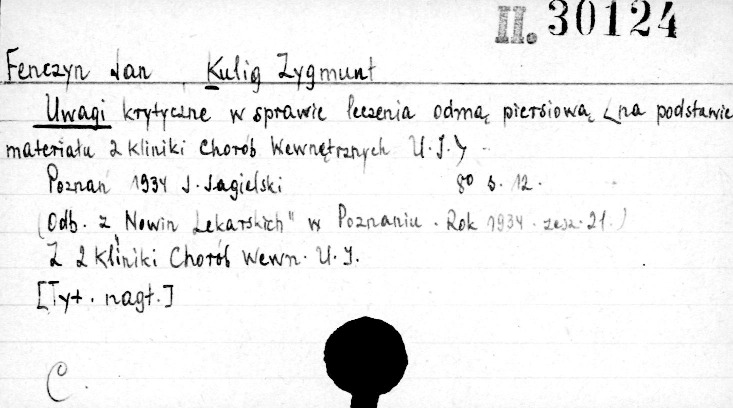 II. 30124
Fenczyn Jan, Kulig Zygmunt
Uwagi krytyczne w sprawie leczenia odmą piersiową <na podstawie
materiału 2 kliniki Chorób Wewnętrznych U.J.>
Poznań 1934 J. Jagielski 8° s. 12.
(Odb. z „Nowin Lekarskich" w Poznaniu. Rok 1934. zesz. 21.)
Z 2 kliniki Chorób Wewn. U. J.
[Tyt. nagł.]
C.